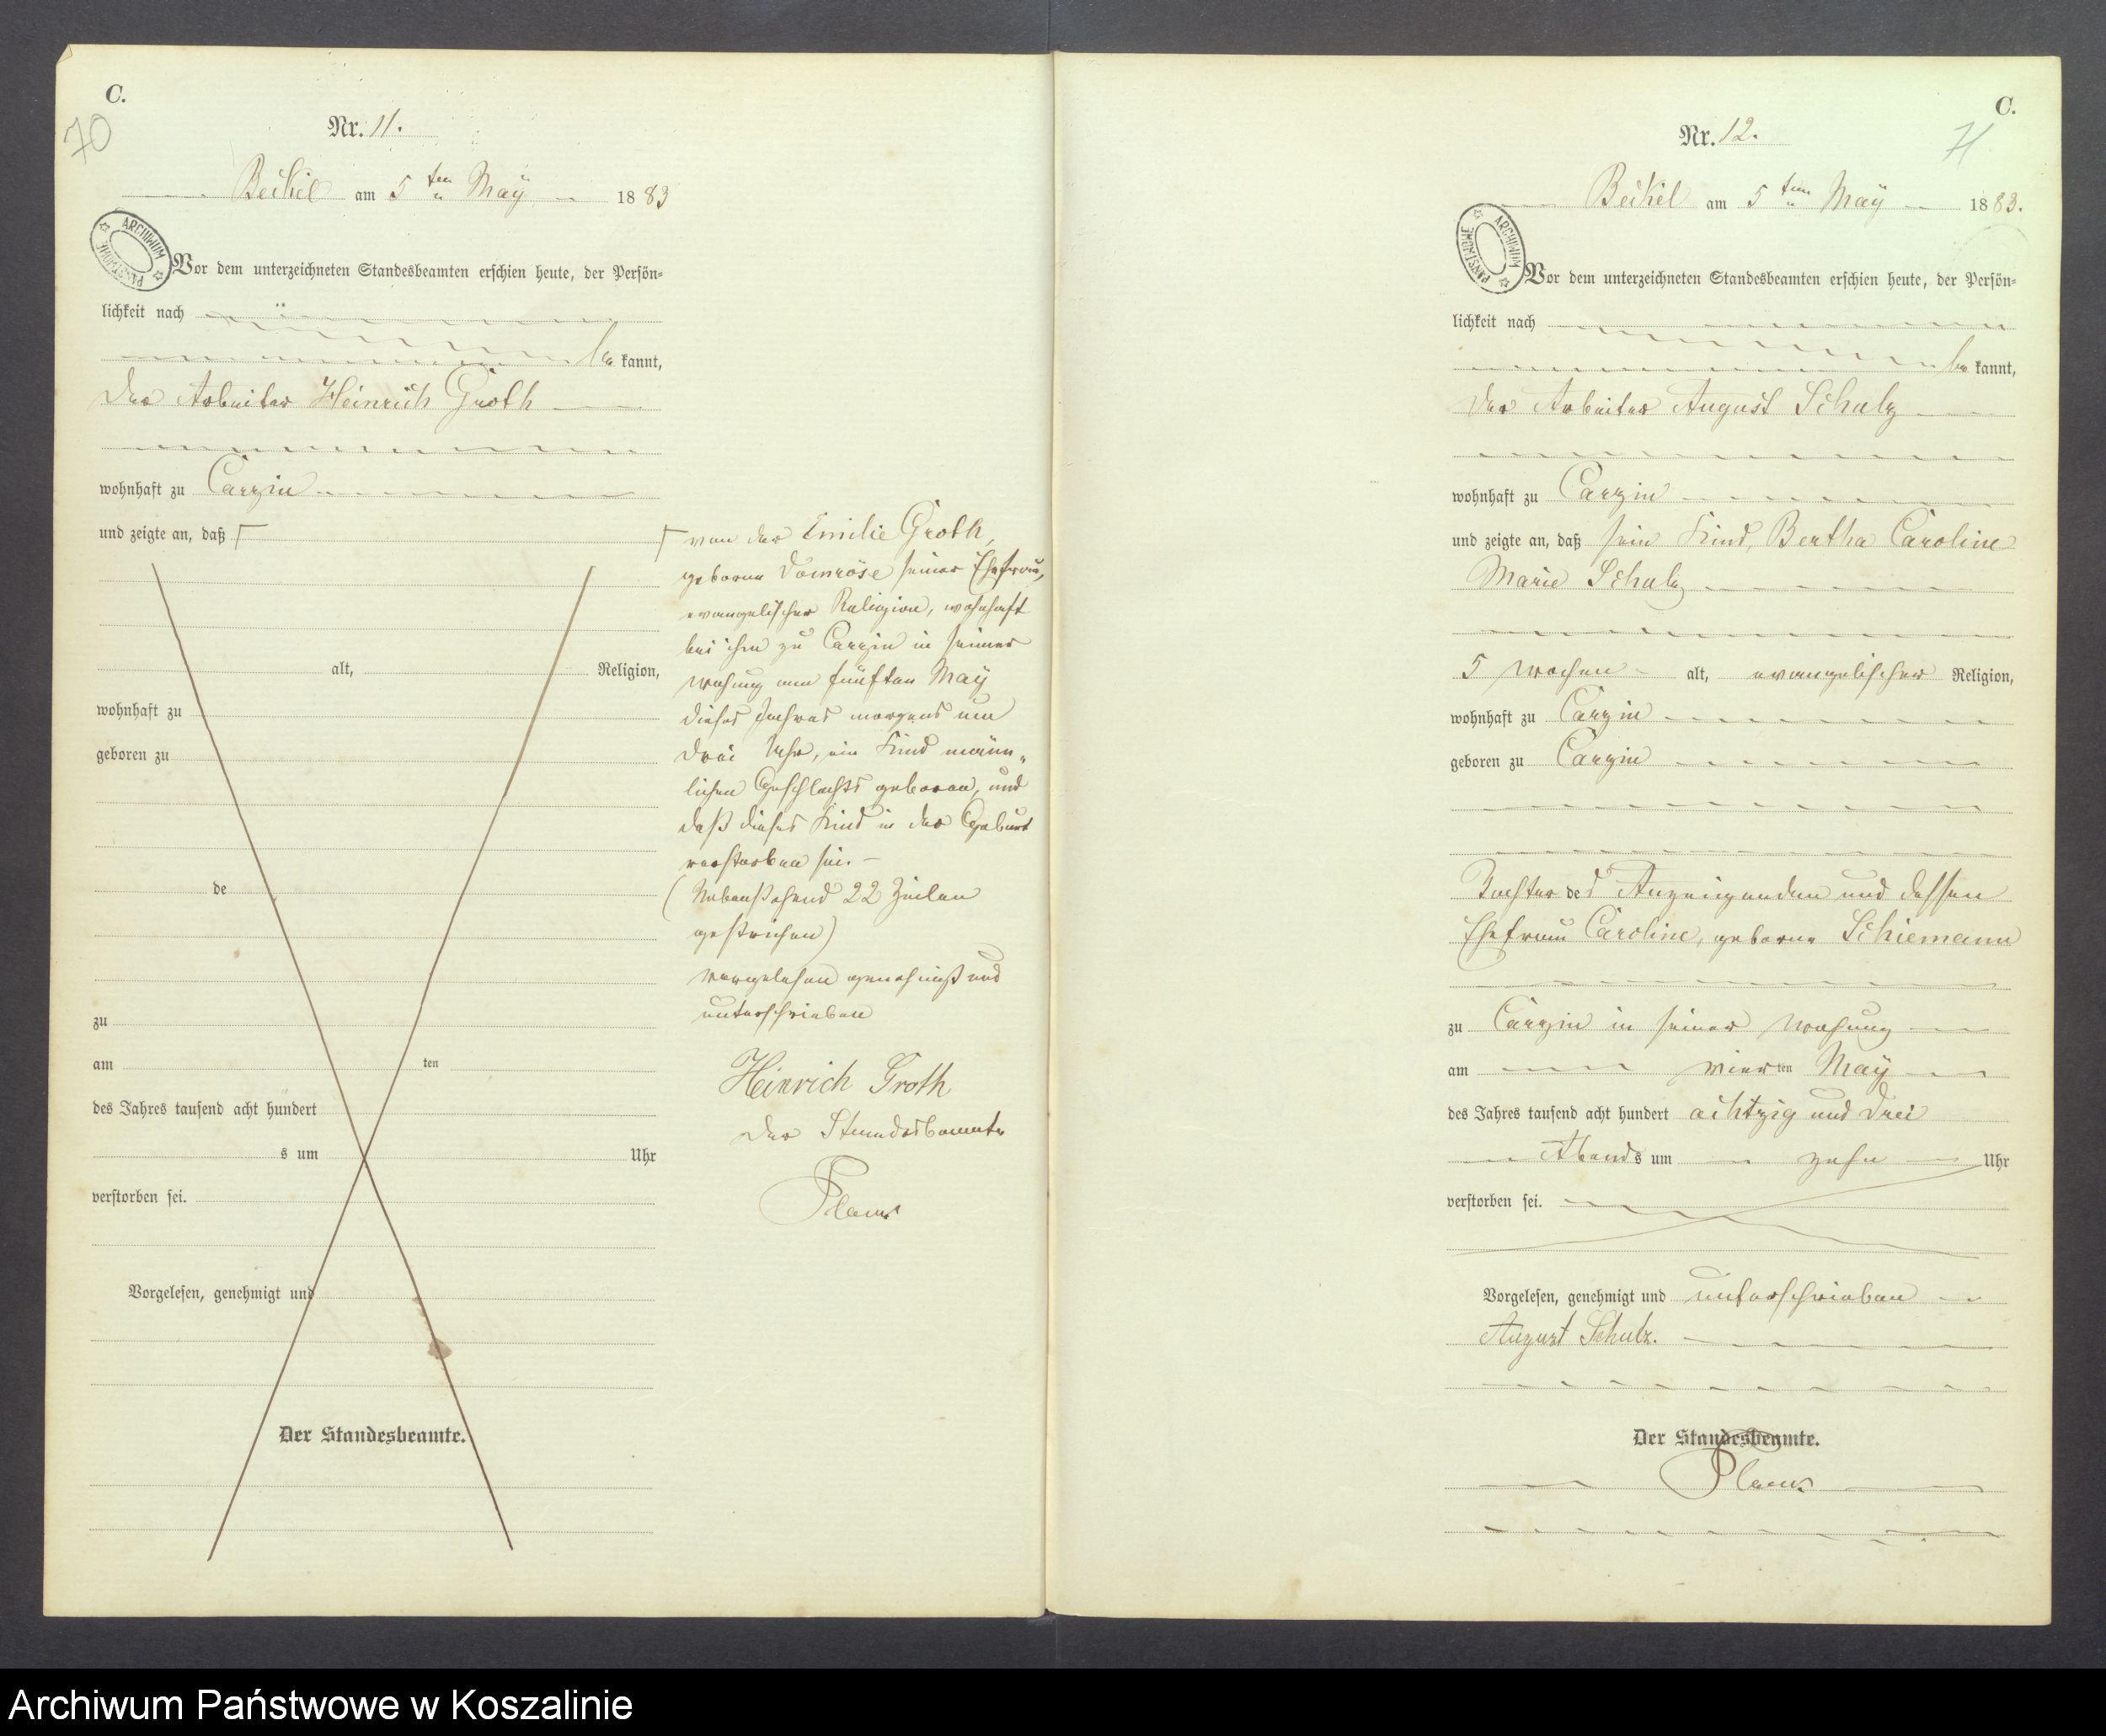 C.
70
Nr. 11.
Beckel am 5 ten May 1883
ARCHIWUM PAŃSTWOWE
Vor dem unterzeichneten Standesbeamten erschien heute, der Persön-
lichkeit nach
be kannt,
der Arbeiter Heinrich Groth
wohnhaft zu Carzin
und zeigte an, daß Γ
alt, Religion,
wohnhaft zu
geboren zu
de
zu
am ten
des Jahres tausend acht hundert
s um Uhr
verstorben sei.
Vorgelesen, genehmigt und
Der Standesbeamte.
Γ von der Emilie Groth,
geborne Domröse seiner Ehefrau,
evangelischer Religion, wohnhaft
bei ihm zu Carzin in seiner
Wohung am fünften May
dieses Jahres morgens um
drei Uhr, ein Kind männ-
lichen Geschlechts geboren, und
daß dieses Kind in der Geburt
verstorben sei. –
(Nebenstehend 22 Zeilen
gestrichen)
Vorgelesen genehmigt und
unterschrieben
Heinrich Groth
Der Standesbeamte
C.
71
Nr. 12.
Beckel am 5 ten May 1883.
ARCHIWUM PAŃSTWOWE
Vor dem unterzeichneten Standesbeamten erschien heute, der Persön-
lichkeit nach
be kannt,
der Arbeiter August Schulz
wohnhaft zu Carzin
und zeigte an, daß sein Kind, Bertha Caroline
Marie Schulz
5 Wochen alt, evangelischer Religion,
wohnhaft zu Carzin
geboren zu Carzin
Tochter des Anzeigenden und dessen
Ehefrau Caroline, geborne Schiemann
zu Carzin in seiner Wohung
am vierten May
des Jahres tausend acht hundert achtzig und drei
Abends um zehn Uhr
verstorben sei.
Vorgelesen, genehmigt und unterschrieben
August Schulz.
Der Standesbeamte.
Archiwum Państwowe w Koszalinie